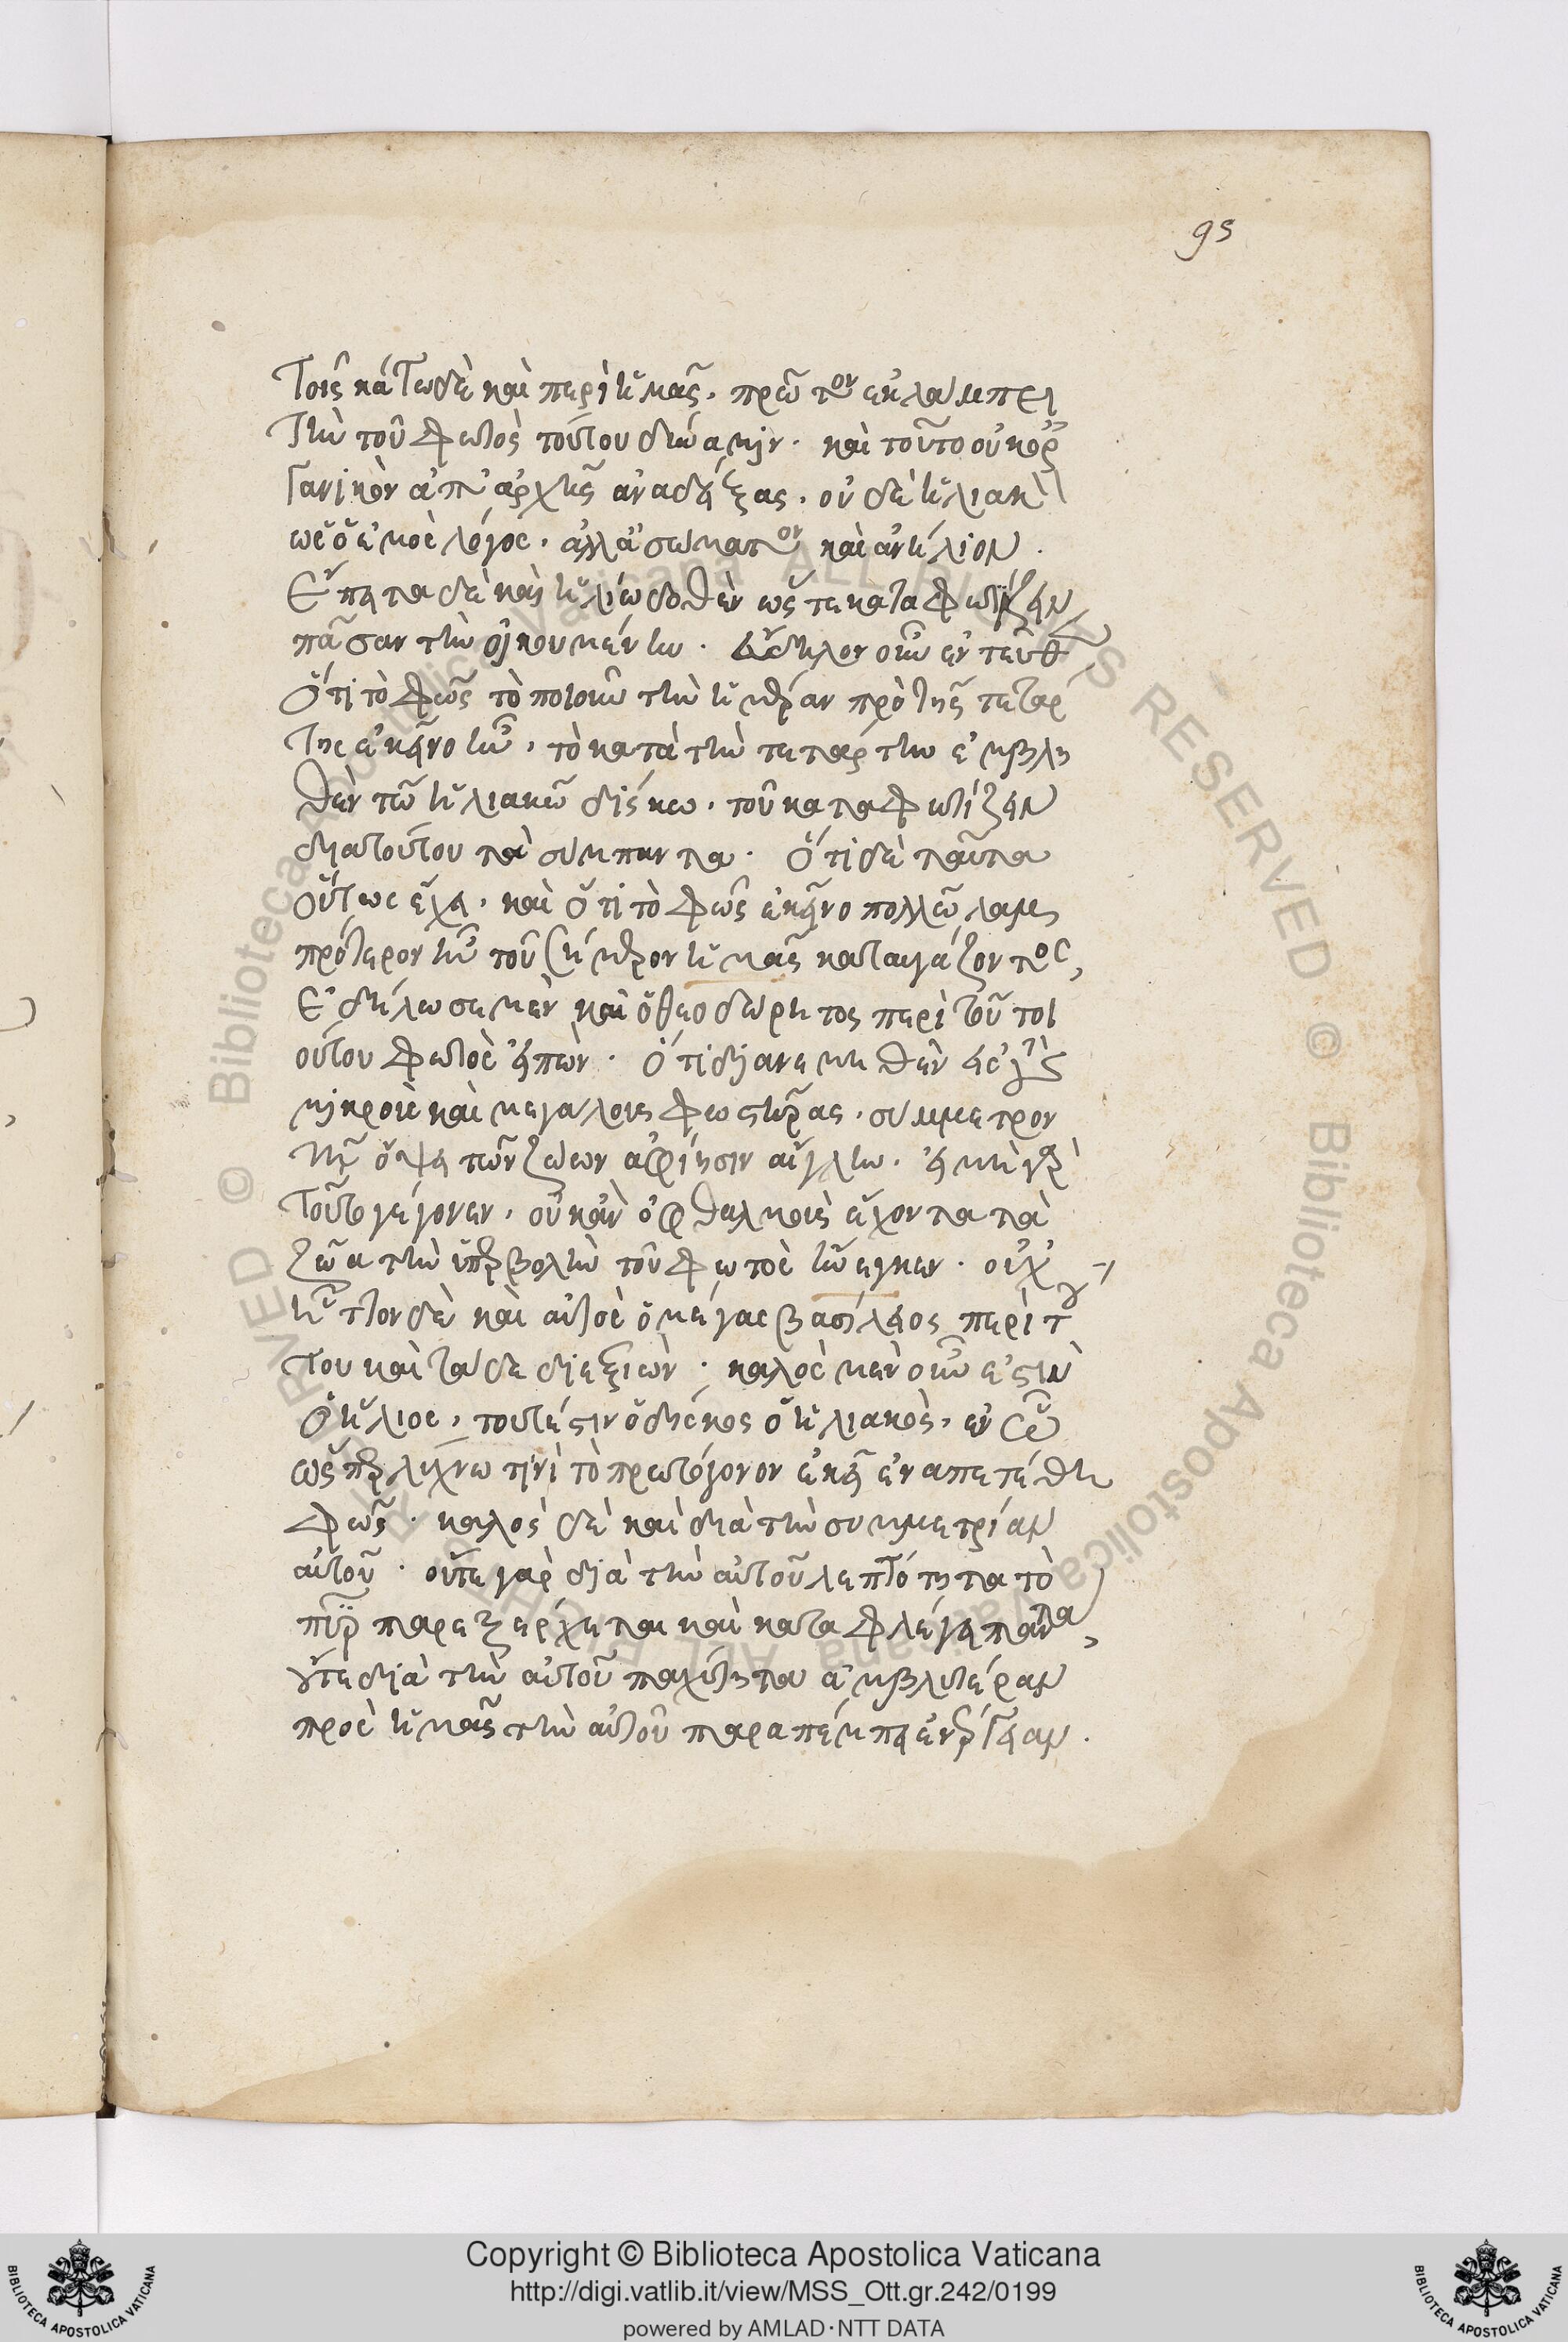 95
τοῖς κάτω δὲ καὶ περὶ ἡμᾶς, πρῶτον ἐκλάμπει
τὴν τοῦ φωτὸς τούτου δύναμιν. καὶ τοῦτο οὐκ ὀρ
γανικὸν ἀπ' ἀρχῆς ἀναδείξας, οὐδὲ ἡλιακὸν
ὡς ὁ ἐμὸς λόγος, ἀλλ' ἀσώματον καὶ ἀνήλιον.
Ἔπειτα δὲ καὶ ἡλίω δοθὲν ὥστε καταφωτίζειν
πᾶσαν τὴν οἰκουμένην. δῆλον οὖν ἐντεῦθεν
ὅτι τὸ φῶς τὸ ποιοῦν τὴν ἡμέραν πρὸ τῆς τετάρ
της ἐκεῖνο ἦν, τὸ κατὰ τὴν τετάρτην ἐμβλη
θὲν τῶ ἡλιακῶ δίσκω, τοῦ καταφωτίζειν
διὰ τούτου τὰ σύμπαντα. Ὅτι δὲ ταῦτα
οὕτως ἔχει, καὶ ὅτι τὸ φῶς ἐκεῖνο πολλῶ λαμ
πρότερον ἦν τοῦ σήμερον ἡμᾶς καταυγάζοντος,
ἐδήλωσε μὲν καὶ ὁ θεοδώρητος περὶ τοῦ τοι
ούτου φωτὸς εἰπὼν. Ὅτι διανεμηθὲν εἰς τοὺς
μικροὺς καὶ μεγάλους φωστῆρας, σύμμετρον
τῇ ὄψει τῶν ζώων ἀφίησιν αἴγλην. εἰ μὴ γὰρ
τοῦτο γέγονεν, οὐκ ἂν ὀφθαλμοὺς ἔχοντα τὰ
ζῶα τὴν ὑπερβολὴν τοῦ φωτὸς ἤνεγκεν. οὐχ
ἧττον δὲ καὶ αὐτὸς ὁ μέγας βασίλειος περὶ τού
του καὶ τάδε διεξιὼν. καλὸς μὲν οὖν ἐστὶν
ὁ ἥλιος, τουτέστιν ὁ δίσκος ὁ ἡλιακὸς, ἐν ᾧ
ὥσπερ λύχνω τινὶ τὸ πρωτόγονον ἐκεῖ ἐναπετέθη
φῶς. καλὸς δὲ καὶ διὰ τὴν συμμετρίαν
αὐτοῦ. οὔτε γὰρ διὰ τὴν αὐτοῦ λεπτότητα τὸ
πῦρ παρεξέρχεται καὶ καταφλέγει πάντα,
οὔτε διὰ τὴν αὐτοῦ παχύτητα ἀμβλυτέραν
πρὸς ἡμᾶς τὴν αὐτοῦ παραπέμπει ἐνέργειαν.
Copyright © Biblioteca Apostolica Vaticana
http://digi.vatlib.it/view/MSS_Ott.gr.242/0199
powered by AMLAD·NTT DATA